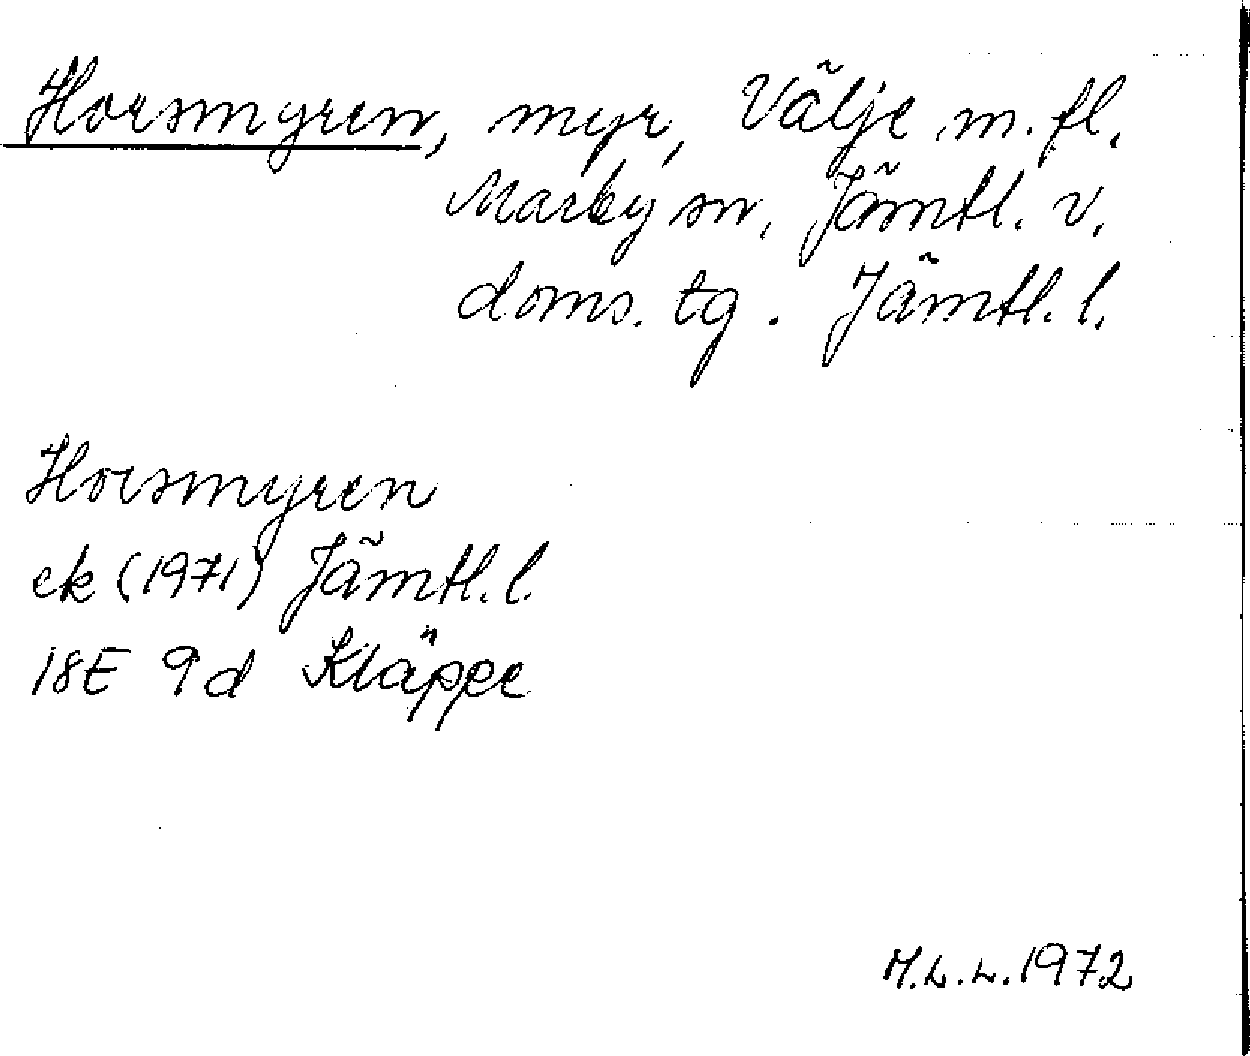 Horsmyren, myr, Välje m.fl.
Marby sn, Jämtl. v.
doms. tg. Jämtl. l.
Horsmyren
ek (1971) Jämtl. l.
18E 9d Kläppe
M.L.L. 1972